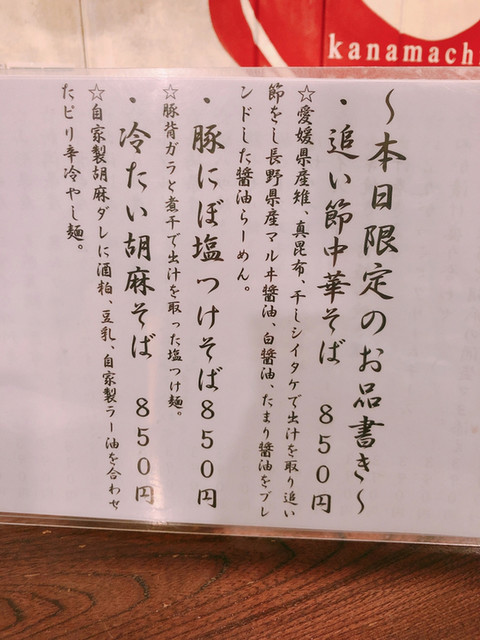 kanamach
～本日限定のお品書き～
・追い節中華そば　８５０円
☆愛媛県産雉、真昆布、干しシイタケで出汁を取り追い
節をし長野県産マルヰ醬油、白醬油、たまり醬油をブレ
ンドした醬油らーめん。
・豚にぼ塩つけそば８５０円
☆豚背ガラと煮干で出汁を取った塩つけ麺。
・冷たい胡麻そば　８５０円
☆自家製胡麻ダレに酒粕、豆乳、自家製ラー油を合わせ
たピリ辛冷やし麺。